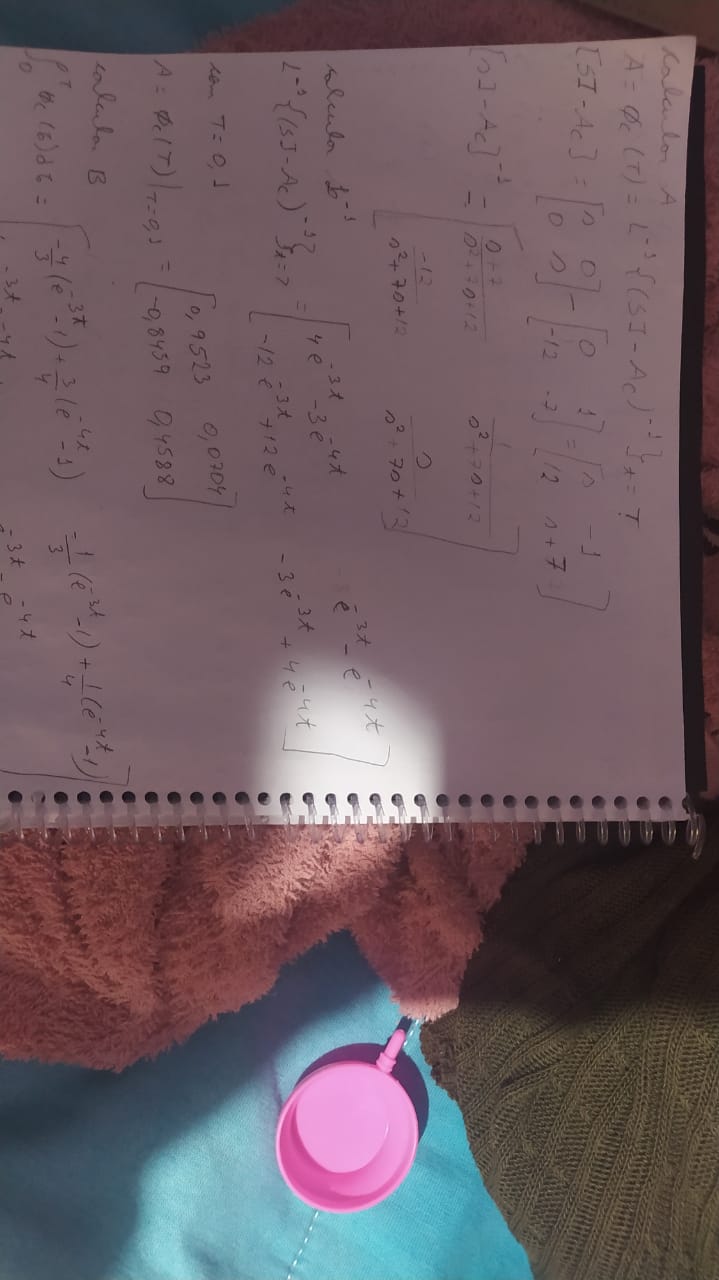 calcular A
A = φc(T) = L⁻¹{(SI-Ac)⁻¹}t=T
[SI-Ac] = [s 0; 0 s] - [0 1; -12 -7] = [s -1; 12 s+7]
[sI-Ac]⁻¹ = [(s+7)/(s²+7s+12) 1/(s²+7s+12); -12/(s²+7s+12) s/(s²+7s+12)]
calcular L⁻¹
L⁻¹{(SI-Ac)⁻¹}t=T = [4e^-3t -3e^-4t e^-3t - e^-4t; -12e^-3t +12e^-4t -3e^-3t + 4e^-4t]
com T=0,1
A = φc(T)|T=0,1 = [0,9523 0,0704; -0,8459 0,4588]
calcular B
∫₀ᵀ φc(τ)dτ = [-4/3(e^-3t -1) + 3/4(e^-4t -1) -1/3(e^-3t -1) + 1/4(e^-4t -1);